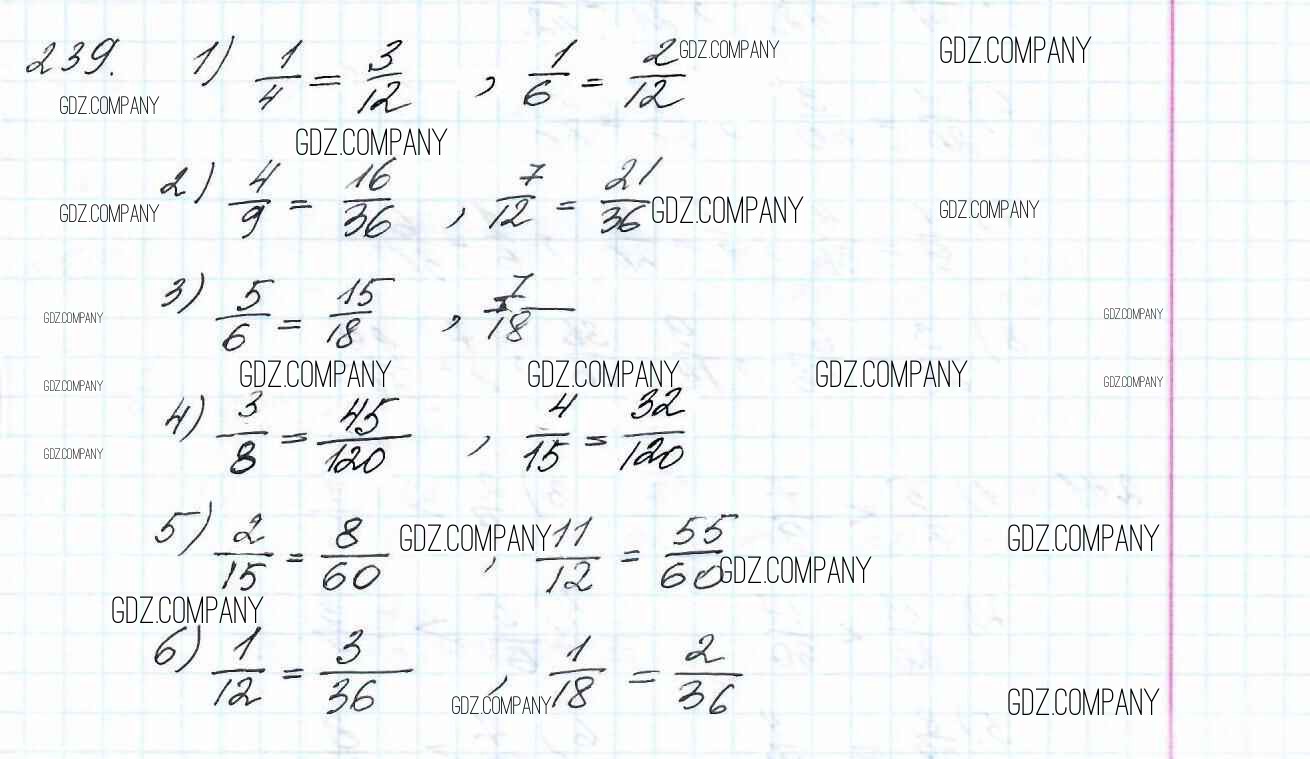 239. 1) 1/4 = 3/12 , 1/6 = 2/12 GDZ.COMPANY GDZ.COMPANY
GDZ.COMPANY
GDZ.COMPANY
2) 4/9 = 16/36 , 7/12 = 21/36 GDZ.COMPANY GDZ.COMPANY
GDZ.COMPANY
3) 5/6 = 15/18 , 7/18
GDZ.COMPANY GDZ.COMPANY
GDZ.COMPANY GDZ.COMPANY GDZ.COMPANY GDZ.COMPANY GDZ.COMPANY
4) 3/8 = 45/120 , 4/15 = 32/120
GDZ.COMPANY
5) 2/15 = 8/60 GDZ.COMPANY , 11/12 = 55/60 GDZ.COMPANY GDZ.COMPANY
GDZ.COMPANY
6) 1/12 = 3/36 , 1/18 = 2/36
GDZ.COMPANY GDZ.COMPANY